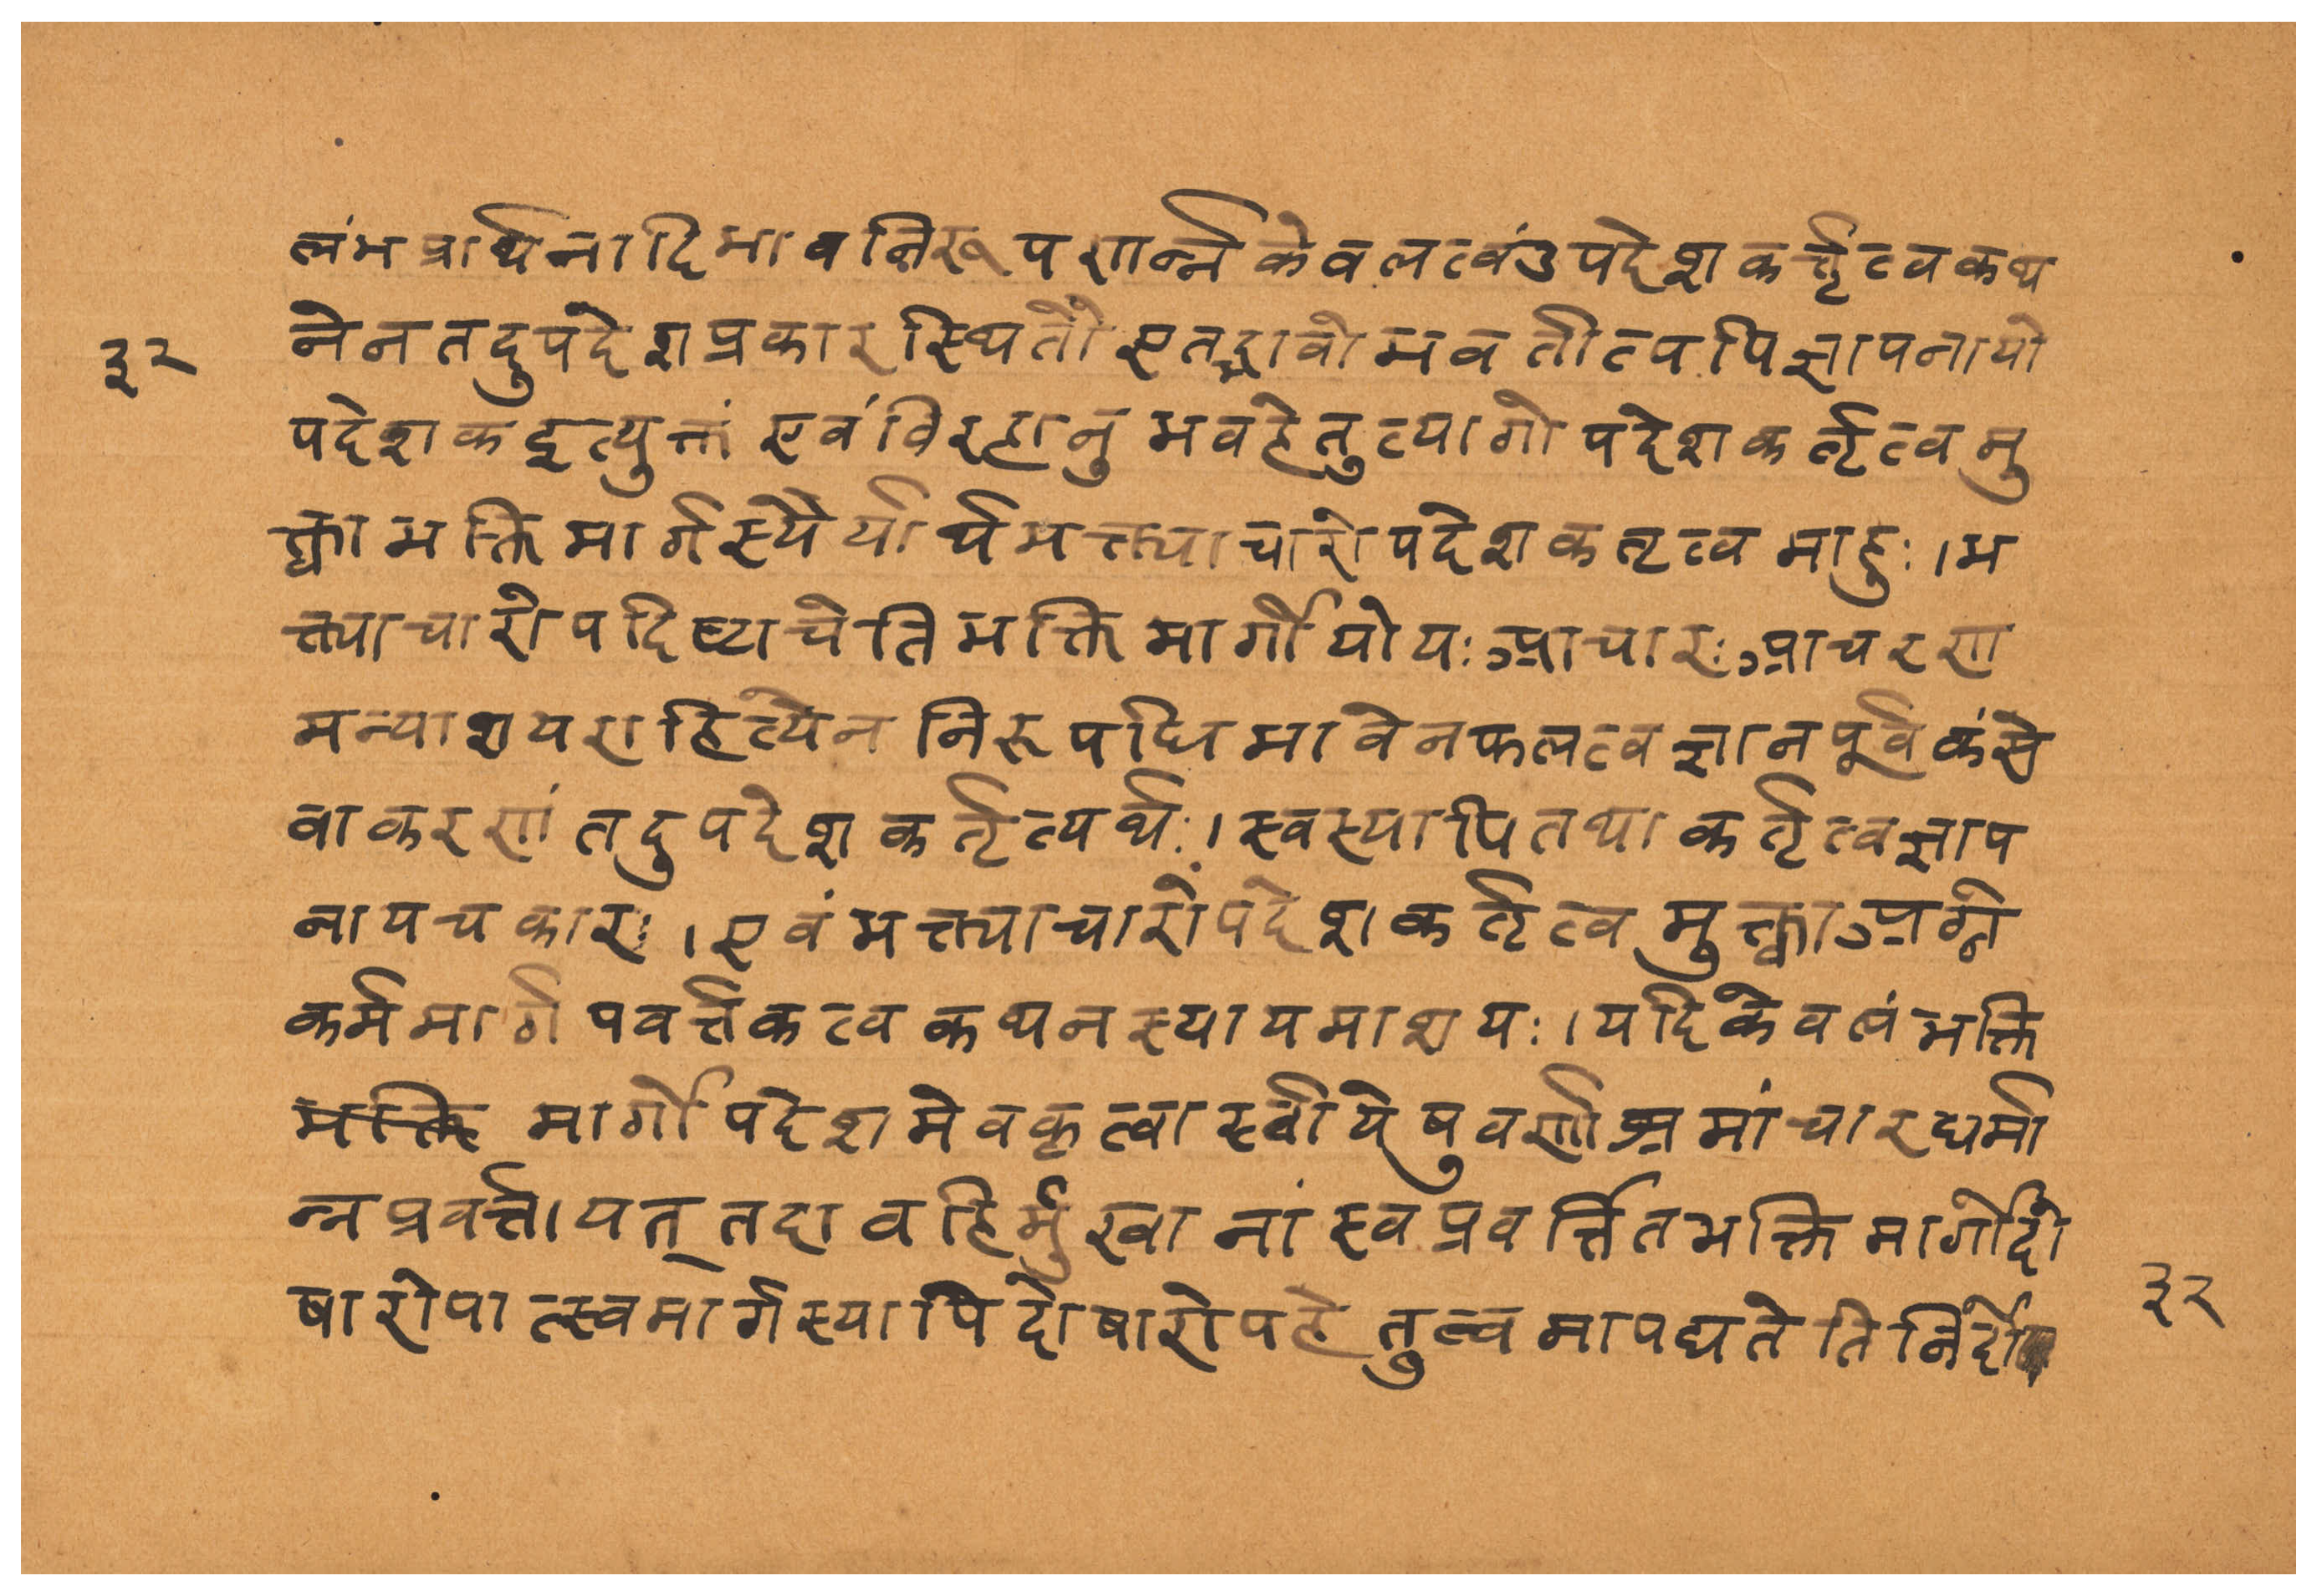 लंभप्रार्थनादिभावनिरूपणान्न केवलत्वं उपदेशकर्त्तृत्वकथ
३२ नेन तदुपदेशप्रकारस्थितौ एतद्भावो भवतीत्यपि ज्ञापनायो
पदेशक इत्युक्तं एवं विरहानुभवहेतुत्यागोपदेशकर्तृत्वमु
क्त्वा भक्तिमार्गस्थैर्यार्थभक्त्याचारोपदेशकतृत्वमाहुः । भ
क्त्याचारोपदिष्टा चेति भक्तिमार्गो योयः आचारः आचरण
मन्याश्रयराहित्येन निरूपधिभावेन फलत्वज्ञानपूर्वकं से
वाकरणं तदुपदेशकर्तृत्यर्थः । स्वस्यापि तथा कर्तृत्वज्ञाप
नाय चकारः । एवं भक्त्याचारोपदेशकर्तृत्वमुक्त्वा अग्रे
कर्ममार्गपवर्त्तकत्वकथनस्यायमाशयः । यदि केवलं भक्ति
भक्ति मार्गोपदेशमेव कृत्वा स्वीयेषु वर्णाश्रमांचारधर्मा
न्न प्रवर्त्तायत् तदा वहिर्मुखानां स्वप्रवर्त्तितभक्तिमार्गे दो
षारोपात्स्वमार्गस्यापि दोषारोपहेतुत्वमापद्यतेति निर्दो ३२